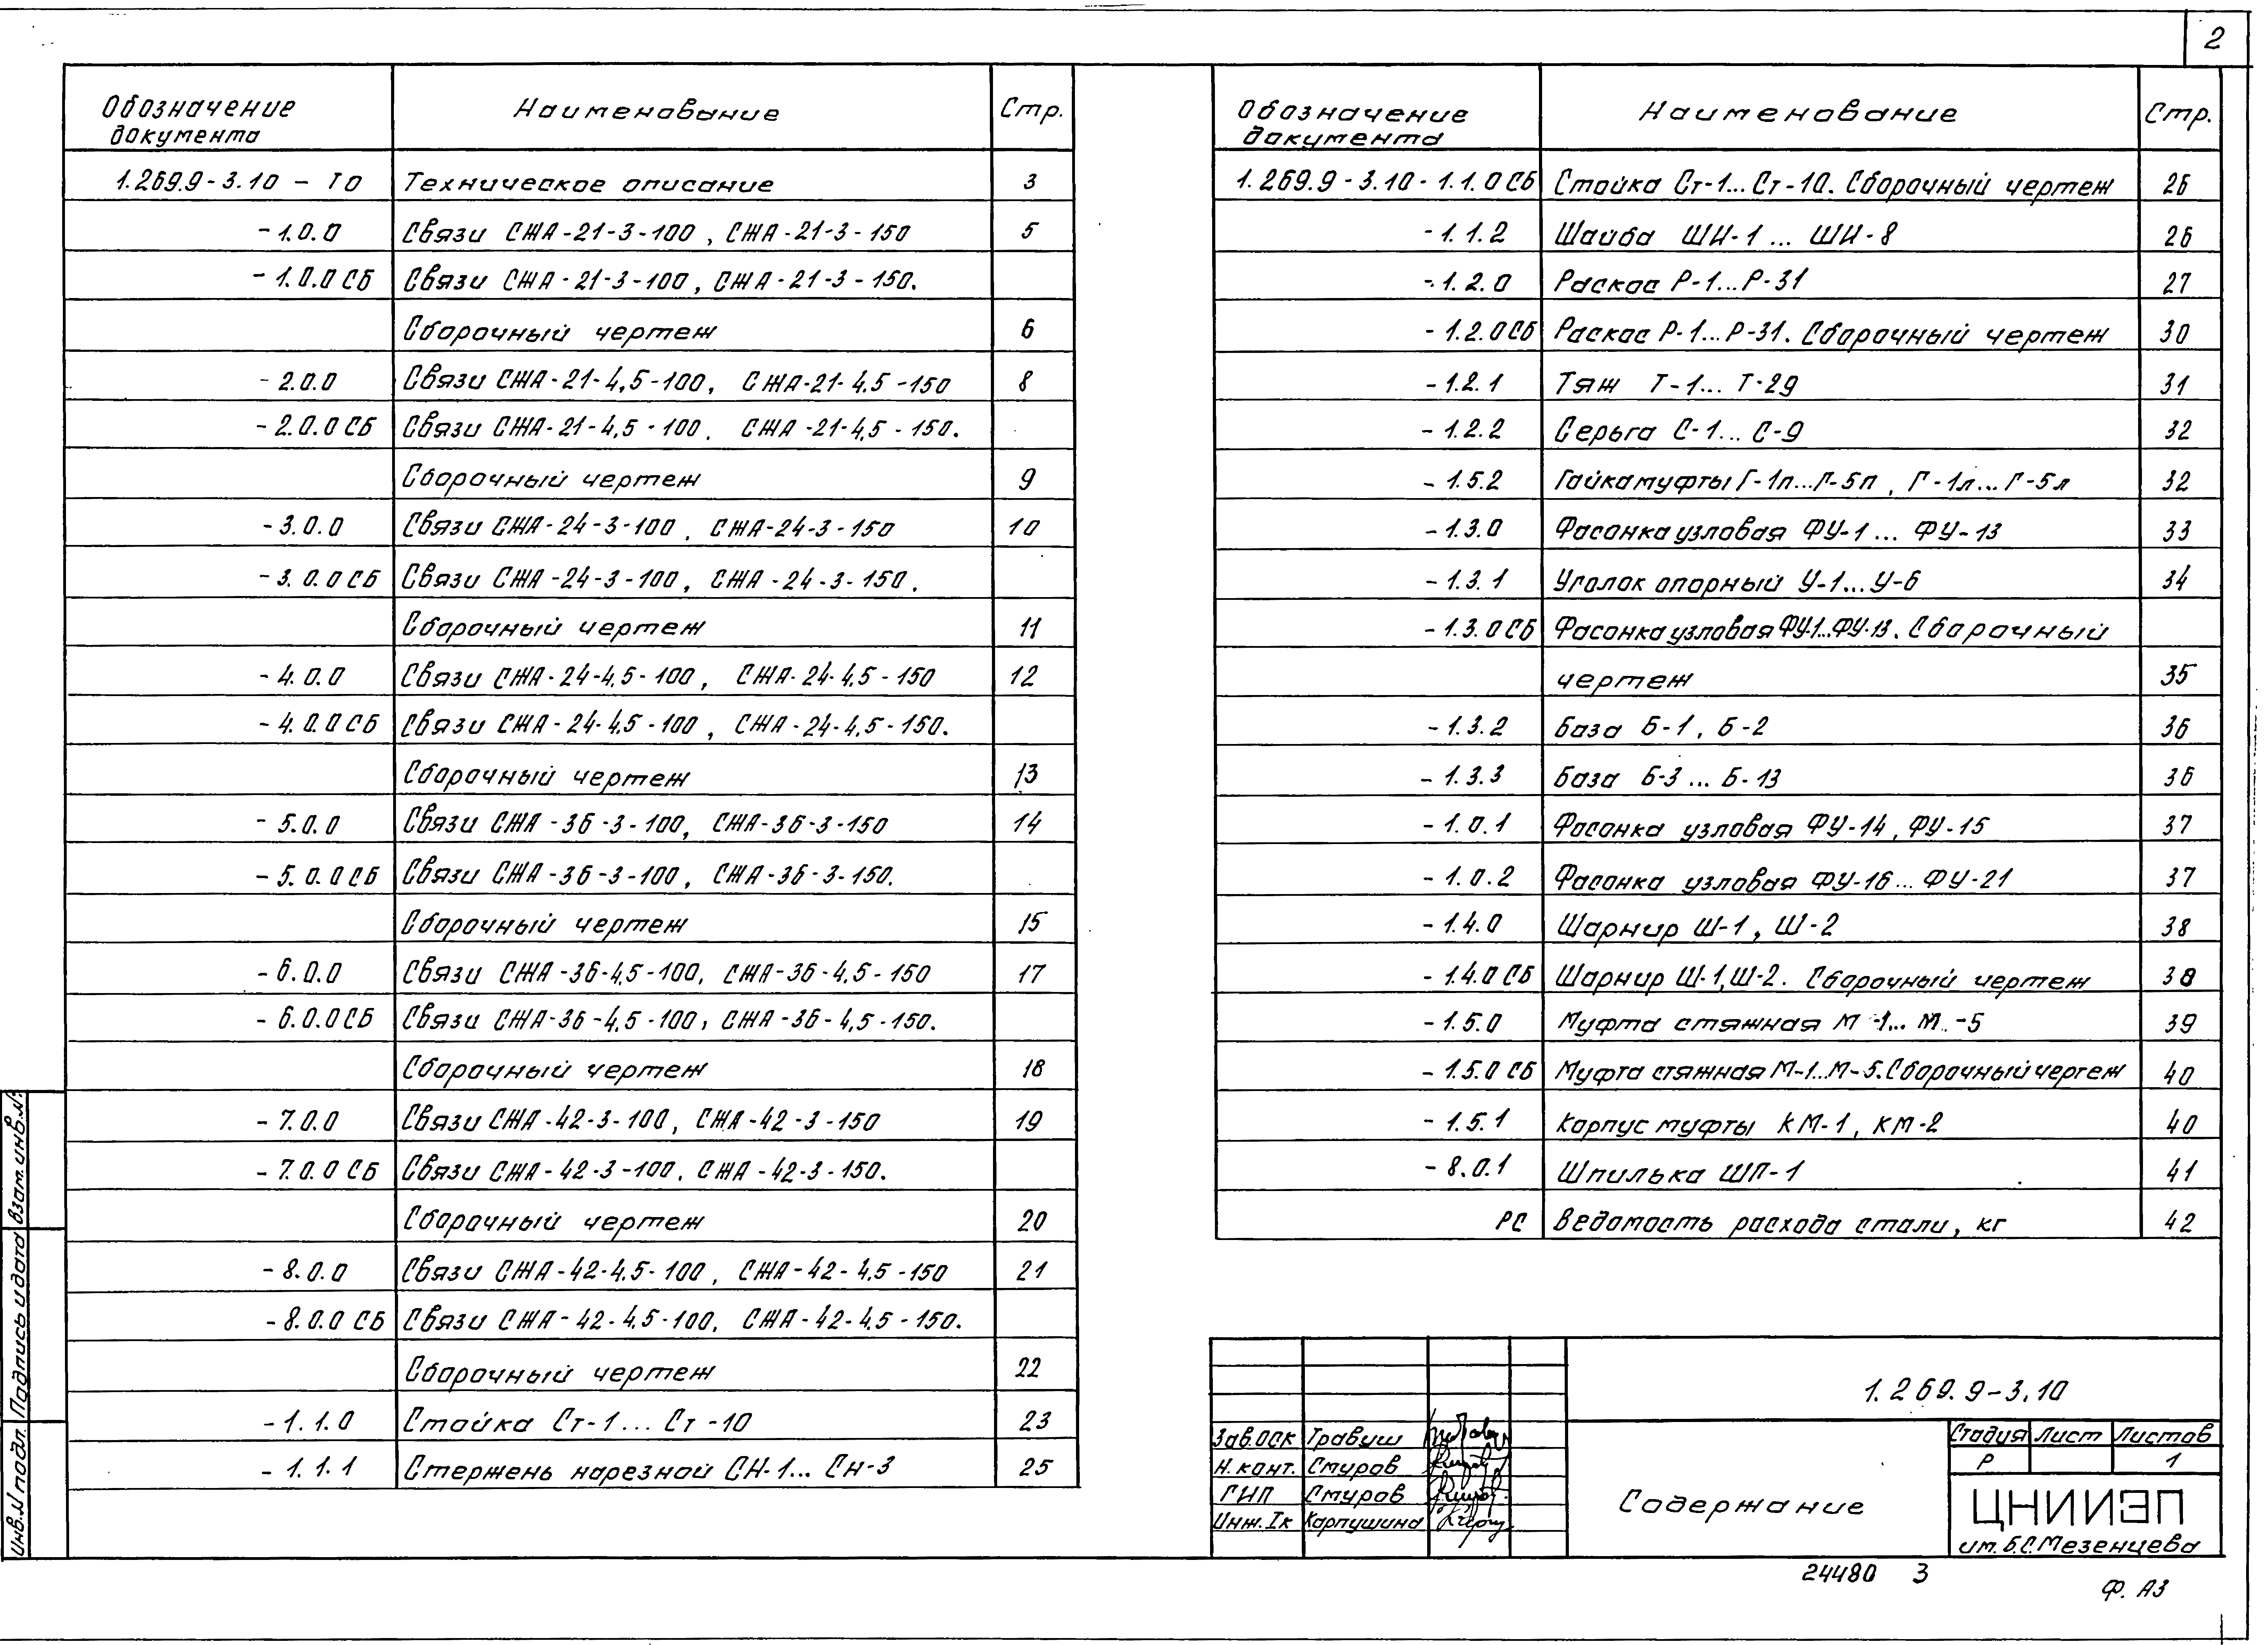 2
Обозначение документа Наименование Стр.
1.269.9-3.10 - ТО Техническое описание 3
- 1.0.0 Связи СЖА-21-3-100, СЖА-21-3-150 5
- 1.0.0 СБ Связи СЖА-21-3-100, СЖА-21-3-150.
Сборочный чертеж 6
- 2.0.0 Связи СЖА-21-4,5-100, СЖА-21-4,5-150 8
- 2.0.0 СБ Связи СЖА-21-4,5-100, СЖА-21-4,5-150.
Сборочный чертеж 9
- 3.0.0 Связи СЖА-24-3-100, СЖА-24-3-150 10
- 3.0.0 СБ Связи СЖА-24-3-100, СЖА-24-3-150.
Сборочный чертеж 11
- 4.0.0 Связи СЖА-24-4,5-100, СЖА-24-4,5-150 12
- 4.0.0 СБ Связи СЖА-24-4,5-100, СЖА-24-4,5-150.
Сборочный чертеж 13
- 5.0.0 Связи СЖА-36-3-100, СЖА-36-3-150 14
- 5.0.0 СБ Связи СЖА-36-3-100, СЖА-36-3-150.
Сборочный чертеж 15
- 6.0.0 Связи СЖА-36-4,5-100, СЖА-36-4,5-150 17
- 6.0.0 СБ Связи СЖА-36-4,5-100, СЖА-36-4,5-150.
Сборочный чертеж 18
- 7.0.0 Связи СЖА-42-3-100, СЖА-42-3-150 19
- 7.0.0 СБ Связи СЖА-42-3-100, СЖА-42-3-150.
Сборочный чертеж 20
- 8.0.0 Связи СЖА-42-4,5-100, СЖА-42-4,5-150 21
- 8.0.0 СБ Связи СЖА-42-4,5-100, СЖА-42-4,5-150.
Сборочный чертеж 22
- 1.1.0 Стойка Ст-1... Ст-10 23
- 1.1.1 Стержень нарезной СН-1... Сн-3 25
Обозначение документа Наименование Стр.
1.269.9-3.10-1.1.0 СБ Стойка Ст-1... Ст-10. Сборочный чертеж 26
- 1.1.2 Шайба ШИ-1 ... ШИ-8 26
- 1.2.0 Раскос Р-1...Р-31 27
- 1.2.0 СБ Раскос Р-1...Р-31. Сборочный чертеж 30
- 1.2.1 Тяж Т-1... Т-29 31
- 1.2.2 Серьга С-1... С-9 32
- 1.5.2 Гайка муфты Г-1п...Г-5п, Г-1л...Г-5л 32
- 1.3.0 Фасонка узловая ФУ-1 ... ФУ-13 33
- 1.3.1 Уголок опорный У-1... У-6 34
- 1.3.0 СБ Фасонка узловая ФУ-1...ФУ-13. Сборочный
чертеж 35
- 1.3.2 База Б-1, Б-2 36
- 1.3.3 База Б-3 ... Б-13 36
- 1.0.1 Фасонка узловая ФУ-14, ФУ-15 37
- 1.0.2 Фасонка узловая ФУ-16... ФУ-21 37
- 1.4.0 Шарнир Ш-1, Ш-2 38
- 1.4.0 СБ Шарнир Ш-1, Ш-2. Сборочный чертеж 38
- 1.5.0 Муфта стяжная М-1... М-5 39
- 1.5.0 СБ Муфта стяжная М-1...М-5. Сборочный чертеж 40
- 1.5.1 Корпус муфты КМ-1, КМ-2 40
- 8.0.1 Шпилька ШП-1 41
РС Ведомость расхода стали, кг 42
1.269.9-3.10
Зав.ОСК Травуш
Н.конт. Смуров
ГИП Смуров
Инж.Iк Карпушина
Содержание
Стадия Лист Листов
Р 1
ЦНИИЭП
им. Б.С.Мезенцева
24480 3
Ф. А3
Инв.N подл. Подпись и дата Взам.инв.N